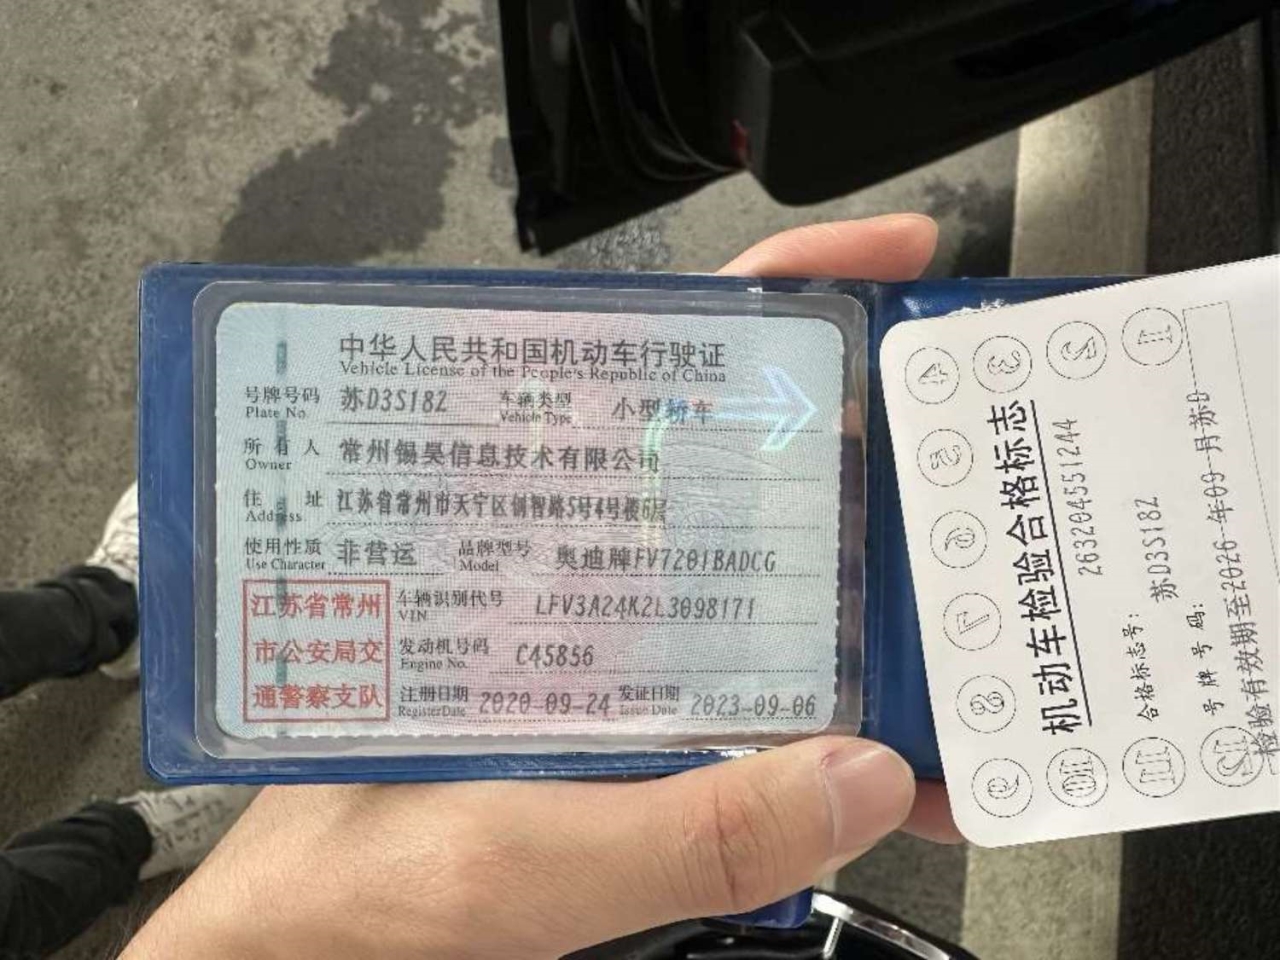 中华人民共和国机动车行驶证
Vehicle License of the People's Republic of China
号牌号码 苏D3S18Z 车辆类型 小型轿车
Plate No. Vehicle Type
所有人 常州锡昊信息技术有限公司
Owner
住址 江苏省常州市天宁区创智路5号4号楼6层
Address
使用性质 非营运 品牌型号 奥迪牌FV7201BADCG
Use Character Model
江苏省常州
市公安局交
通警察支队
车辆识别代号 LFV3A24K2L3098171
VIN
发动机号码 C45856
Engine No.
注册日期 2020-09-24 发证日期 2023-09-06
Register Date Issue Date
机动车检验合格标志
合格标志号: 263204551244
号牌号码: 苏D3S18Z
检验有效期至2026年09月苏D
1
2
3
4
5
6
7
8
9
10
11
12